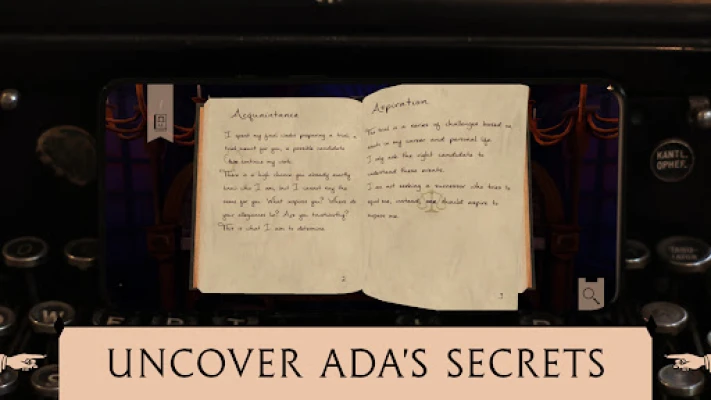 Acquaintance
I spent my final winter preparing a trial, a
trial meant for you, a possible candidate
to continue my work.
There is a high chance you already exactly
know who I am, but I cannot say the
same for you. What inspires you? Where do
your allegiances lie? Are you trustworthy?
This is what I aim to determine.
2
Aspiration
The trial is a series of challenges based on
events in my career and personal life.
I only ask the right candidate to
understand these events.
I am not seeking a successor who tries to
equal me, instead, one should aspire to
surpass me.
3
KANTL.
OPHEF.
UNCOVER ADA'S SECRETS